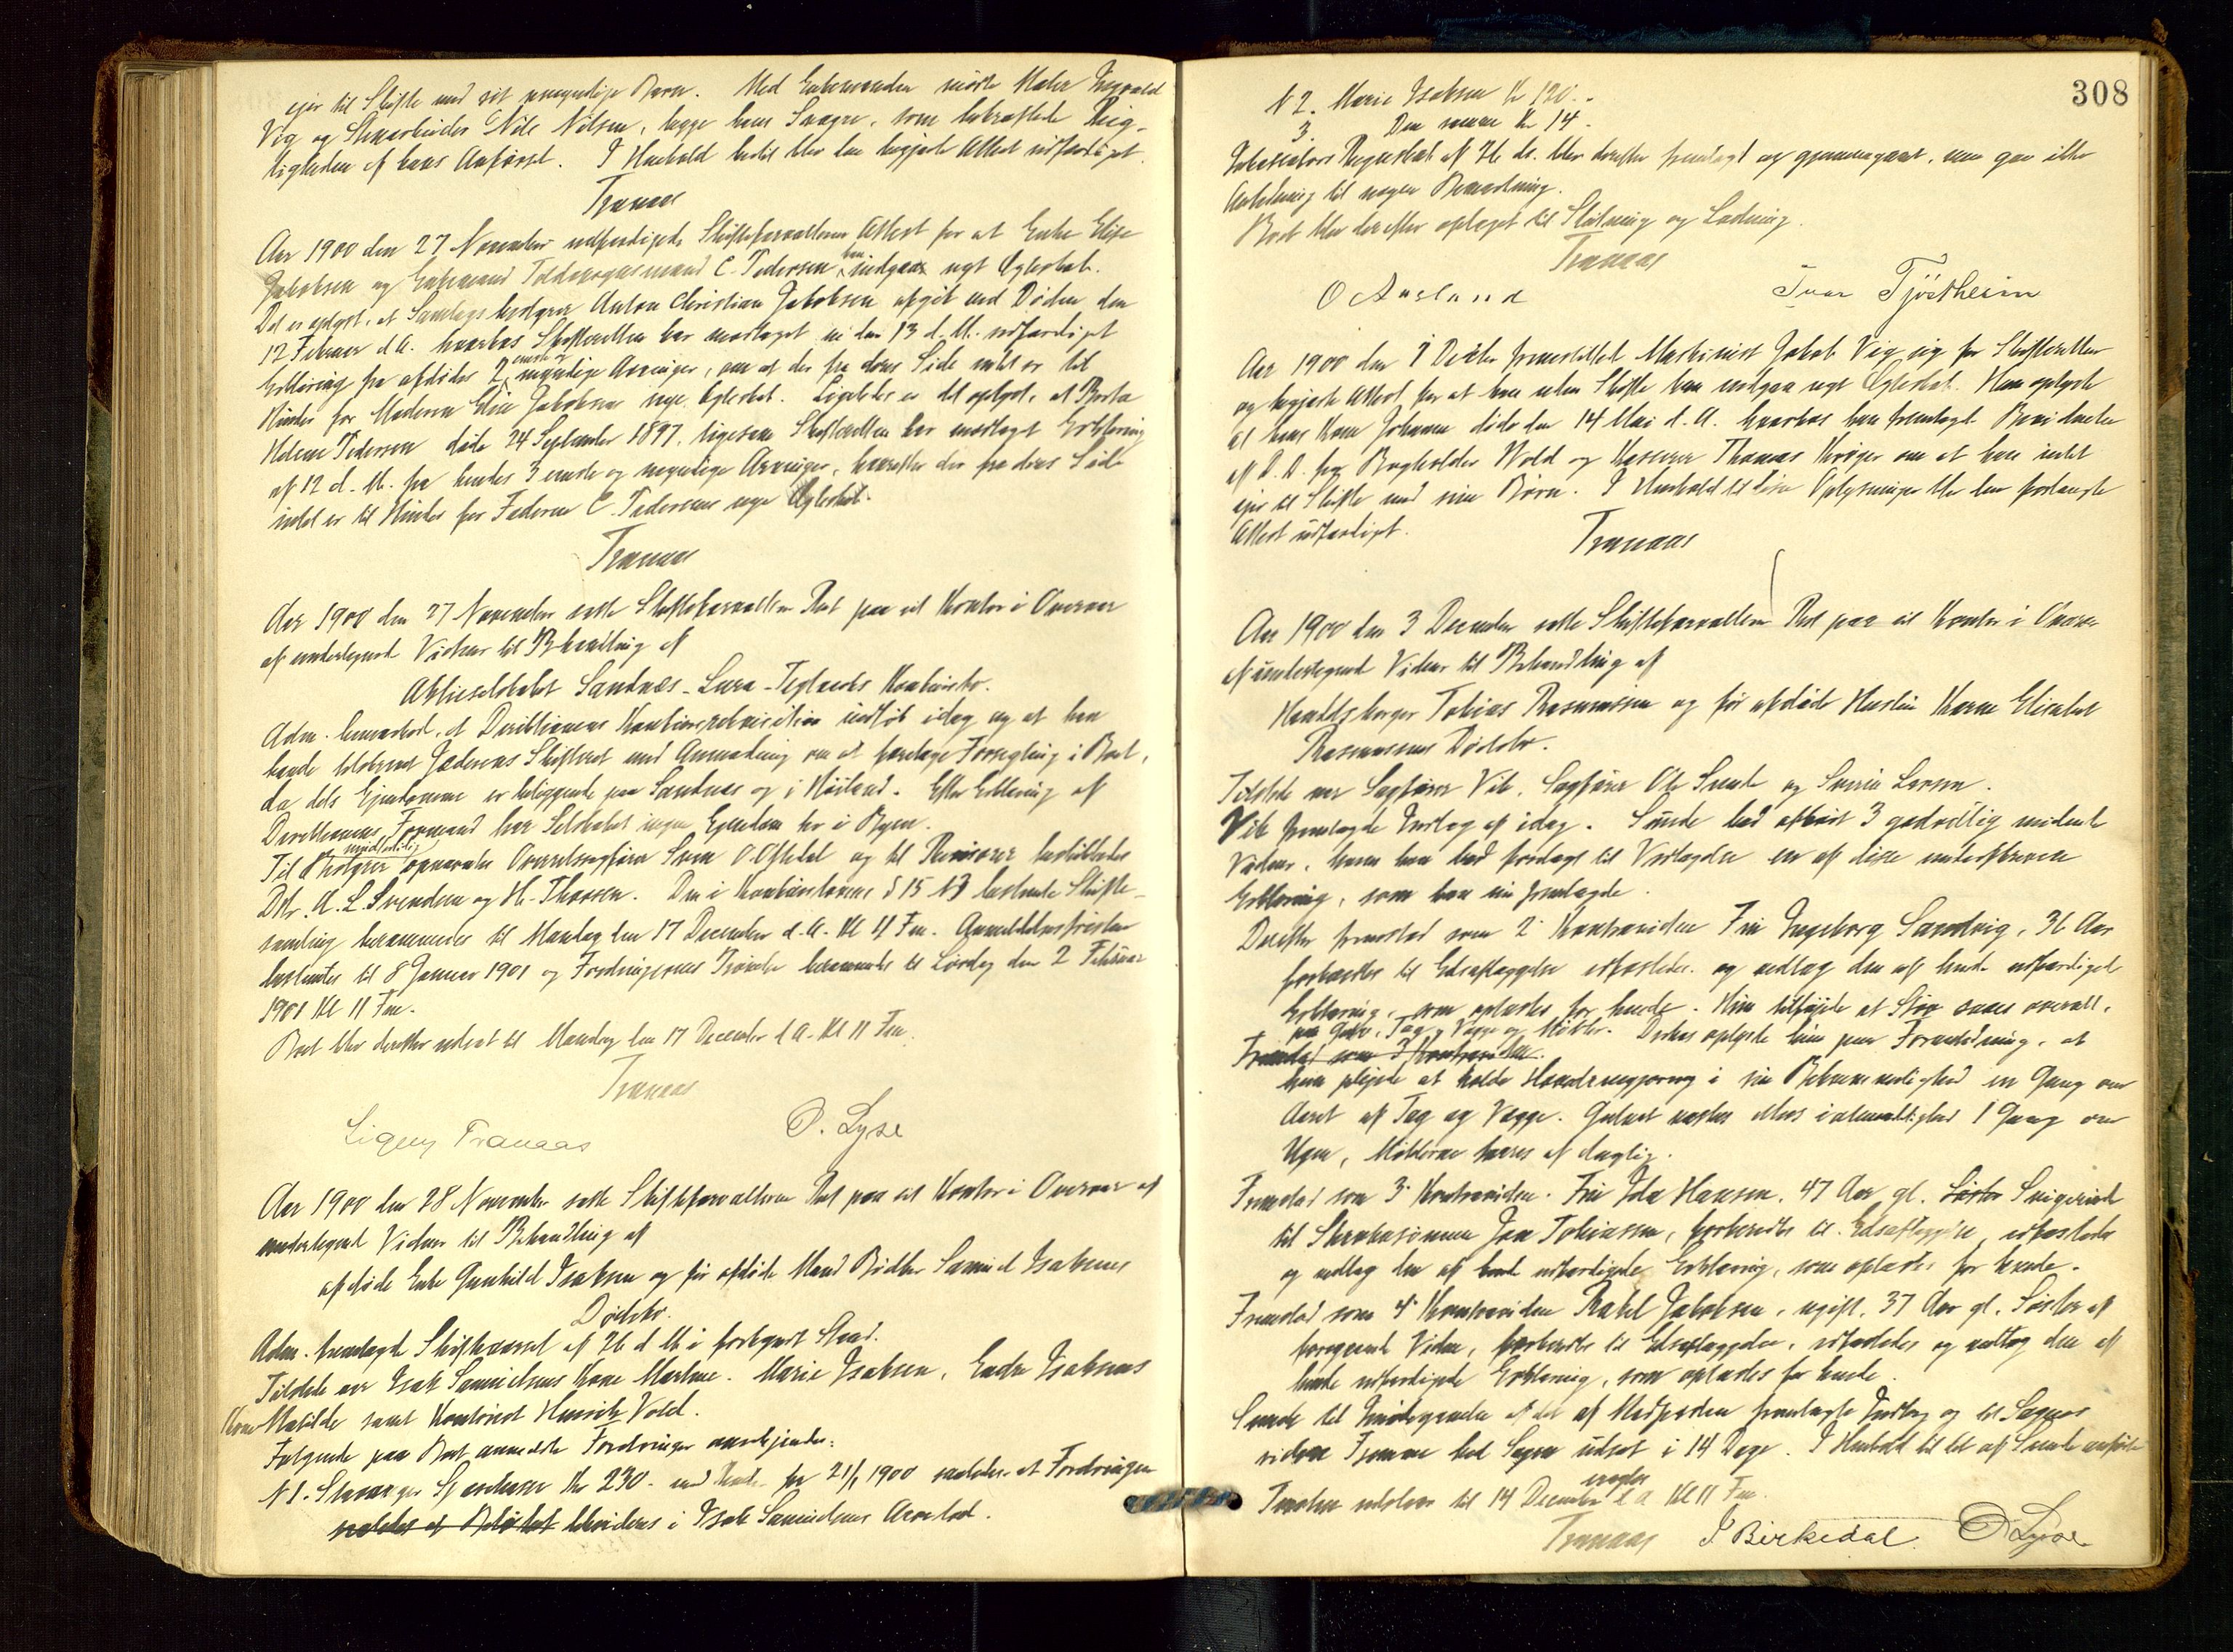 ejer til Skifte med sit umyndige Barn. Med Enkemanden mødte Maler Ingvald
Vig og Stenarbeider Nils Nilsen, begge hans Svogre, som bekræftede Rig-
tigheden af hans Anførsel. I Henhold hertil blev den begjærte Attest udfærdiget.
Tranaas
Aar 1900 den 27 November udfærdigede Skifteforvalteren Attest for at Enke Elise
Jakobsen og Enkemand Toldopsynsmand C. Pedersen kan indgaa nyt Ægteskab.
Det er oplyst, at Samlagsbestyrer Anton Christian Jakobsen afgik ved Døden den
12 Februar d.A. hvorhos Skifteretten har modtaget en den 13 d.M. udfærdiget
Erklæring fra afdødes 2 eneste og myndige Arvinger, om at der fra deres Side intet er til
Hinder for Moderen Elise Jakobsens nye Ægteskab. Ligeledes er det oplyst, at Berta
Helene Pedersen døde 24 September 1897, ligesom Skifteretten har modtaget Erklæring
af 12 d.M. fra hendes 3 eneste og myndige Arvinger, hvorefter der fra deres Side
intet er til Hinder for Faderen C. Pedersens nye Ægteskab.
Tranaas
Aar 1900 den 27 November satte Skifteforvalteren Ret paa sit Kontor i Overvær
af undertegnede Vidner til Behandling af
Aktieselskabet Sandnes-Lura-Teglverks Konkursbo.
Adm. bemærkede, at Direktionens Konkursrekvisition indløb idag og at han
havde telefonert Jæderens Skifteret med Anmodning om at foretage Forsegling i Boet,
da dets Ejendomme er beliggende paa Sandnes og i Høiland. Efter Erklæring af
Direktionens Formand har Selskabet ingen Ejendom her i Byen.
Til midlertidig Bestyrer opnævntes Overretssagfører Sven O. Oftedal og til Revisorer beskikkedes
DHr. A. L. Svendsen og H. Thorsen. Den i Konkurslovens § 15 N3 bestemte Skifte-
samling berammedes til Mandag den 17 December d.A. Kl 11 Fm. Anmeldelsesfristen
bestemtes til 8 Januar 1901 og Fordringernes Prøvelse berammedes til Lørdag den 2 Februar
1901 Kl 11 Fm.
Boet blev derefter udsat til Mandag den 17 December d.A. Kl 11 Fm.
Tranaas
Signy Tranaas O. Lyse
Aar 1900 den 28 November satte Skifteforvalteren Ret paa sit Kontor i Overvær af
undertegnede Vidner til Behandling af
afdøde Enke Gunhild Isaksen og før afdøde Mand Bødker Samuel Isaksens
Dødsbo.
Adm. fremlagde Skiftevarsel af 26 d M i forkyndt Stand.
Tilstede var Isak Samuelsens Kone Martine. Marie Isaksen, Endre Isaksens
Kone Matilde samt Kontorist Henrik Vold.
Følgende paa Boet anmeldte Fordringer anerkjendes:
N 1. Stavanger Sparekasse Kr 230.- med Rente fra 21/1 1900 saaledes at Fordringen
saaledes at Beløbet likvideres i Isak Samuelsens Arvelod.
308
N 2. Marie Isaksen Kr 120.-
3. Den samme Kr 14.
Inkassators Regnskab af 26 ds. blev derefter fremlagt og gjennemgaaet, men gav ikke
Anledning til nogen Bemærkning.
Boet blev derefter optaget til Slutning og Lodning.
Tranaas
O Aasland Ivar Tjøstheim
Aar 1900 den 1 Decbr fremstillet Maskinist Jakob Vig sig for Skifteretten
og begjærte Attest for at han uden Skifte kan indgaa nyt Ægteskab. Han oplyste
at hans Kone Johanne døde den 14 Mai d.A. hvorhos han fremlagde Bevidnelse
af D.D. fra Bogholder Wold og Kasserer Thomas Krøger om at han intet
ejer til Skifte med sine Børn. I Henhold til disse Oplysninger blev den forlangte
Attest udfærdiget.
Tranaas
Aar 1900 den 3 December satte Skifteforvalteren Ret paa sit Kontor i Overvær
af undertegnede Vidner til Behandling af
Handelsborger Tobias Rasmussen og før afdøde Hustru Karen Elisabet
Rasmussens Dødsbo.
Tilstede var Sagfører Vik, Sagfører Ole Sunde og Sverin Larsen.
Vik fremlagde Indlæg af idag. Sunde lod afhørt 3 godvillig mødende
Vidner, hvem han lod forelagt til Vedtagelse en af disse underskreven
Erklæring, som han nu fremlagde.
Derefter fremstod som 2 Kontraviden Fru Ingeborg Sandvig, 36 Aar
forberedtes til Edsaflæggelse edfæstedes og vedtog den af hende udfærdigede
Erklæring, som oplæstes for hende. Hun tilføiede at Støv saaes overalt,
paa Gulv, Tag, Vægge og Møbler. Derhos oplyste hun paa Foranledning, at
Fremstod som 3 Kontraviden.
hun plejede at holde Hovedrengjøring i sin Bekvemmelighed en Gang om
Aaret af Tag og Vægge. Gulvet vaskes ellers i almindelighed 1 Gang om
Ugen, Møblerne tørres af daglig.
Fremstod som 3 Kontraviden. Fru Ida Hansen, 47 Aar gl. Søster Svigerinde
til Skrædersønnen Jon Tobiassen, forberedtes til Edsaflæggelse, edfæstedes
og vedtog den af hende udfærdigede Erklæring, som oplæstes for hende.
Fremstod som 4 Kontraviden Rakel Jakobsen, ugift, 37 Aar gl. Søster af
foregaaende Vidne, forberedtes til Edsaflæggelse, edfæstedes og vedtog den af
hende udfærdigede Erklæring, som oplæstes for hende.
Sunde til Imødegaaelse af det af Modparten fremlagte Indlæg og til Sagens
videre Fremme bad Sagen udsat i 14 Dage. I Henhold til det af Sunde anførte
Sagen udsattes til 14 December d A Kl 11 Fm.
Tranaas J Birkedal O Lyse